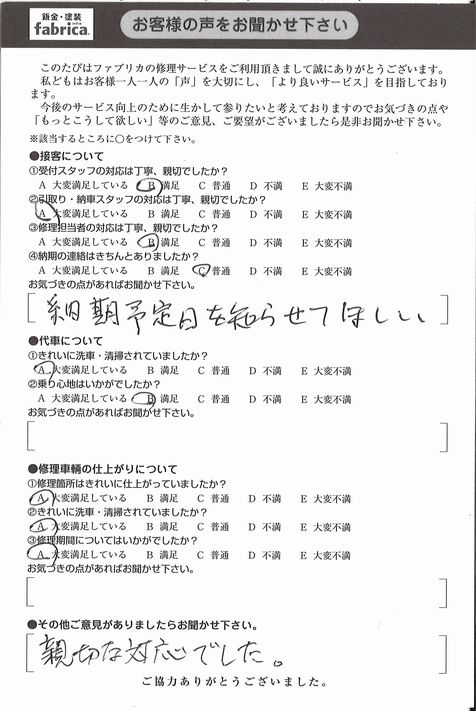 鈑金・塗装
fabrica.
お客様の声をお聞かせ下さい
このたびはファブリカの修理サービスをご利用頂きまして誠にありがとうございます。
私どもはお客様一人一人の「声」を大切にし、「より良いサービス」を目指しており
ます。
今後のサービス向上のために生かして参りたいと考えておりますのでお気づきの点や
「もっとこうして欲しい」等のご意見、ご要望がございましたら是非お聞かせ下さい。
※該当するところに○をつけて下さい。
●接客について
①受付スタッフの対応は丁寧、親切でしたか？
A 大変満足している B 満足 C 普通 D 不満 E 大変不満
②引取り・納車スタッフの対応は丁寧、親切でしたか？
A 大変満足している B 満足 C 普通 D 不満 E 大変不満
③修理担当者の対応は丁寧、親切でしたか？
A 大変満足している B 満足 C 普通 D 不満 E 大変不満
④納期の連絡はきちんとありましたか？
A 大変満足している B 満足 C 普通 D 不満 E 大変不満
お気づきの点があればお聞かせ下さい。
納期予定日を知らせてほしい
●代車について
①きれいに洗車・清掃されていましたか？
A 大変満足している B 満足 C 普通 D 不満 E 大変不満
②乗り心地はいかがでしたか？
A 大変満足している B 満足 C 普通 D 不満 E 大変不満
お気づきの点があればお聞かせ下さい。
●修理車輌の仕上がりについて
①修理箇所はきれいに仕上がっていましたか？
A 大変満足している B 満足 C 普通 D 不満 E 大変不満
②きれいに洗車・清掃されていましたか？
A 大変満足している B 満足 C 普通 D 不満 E 大変不満
③修理期間についてはいかがでしたか？
A 大変満足している B 満足 C 普通 D 不満 E 大変不満
お気づきの点があればお聞かせ下さい。
●その他ご意見がありましたらお聞かせ下さい。
親切な対応でした。
ご協力ありがとうございました。